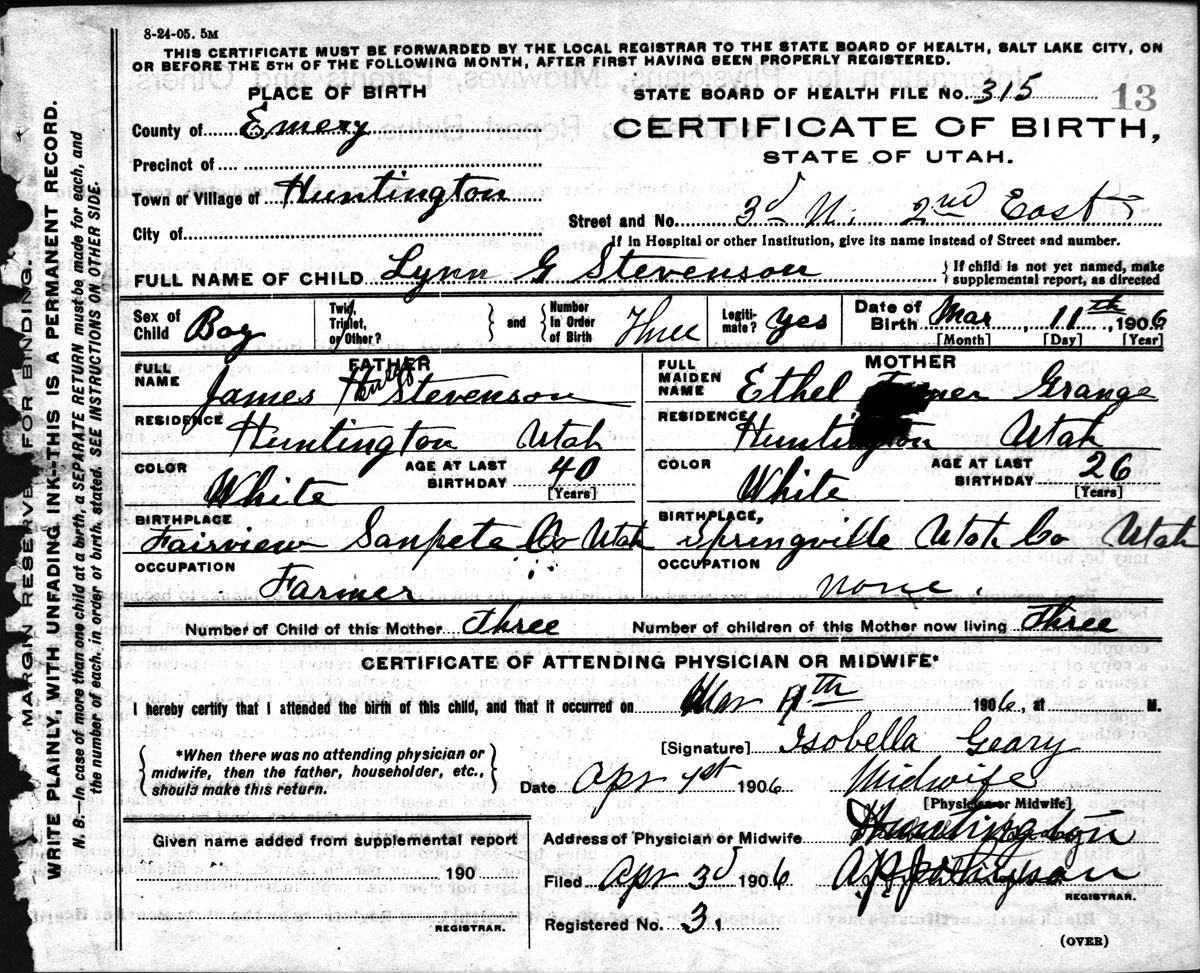 8-24-05. 5M
THIS CERTIFICATE MUST BE FORWARDED BY THE LOCAL REGISTRAR TO THE STATE BOARD OF HEALTH, SALT LAKE CITY, ON
OR BEFORE THE 5TH OF THE FOLLOWING MONTH, AFTER FIRST HAVING BEEN PROPERLY REGISTERED.
MARGIN RESERVED FOR BINDING.
WRITE PLAINLY, WITH UNFADING INK--THIS IS A PERMANENT RECORD.
N. B.--In case of more than one child at a birth, a SEPARATE RETURN must be made for each, and
the number of each, in order of birth, stated. SEE INSTRUCTIONS ON OTHER SIDE.
PLACE OF BIRTH
STATE BOARD OF HEALTH FILE No. 315
13
County of Emery
CERTIFICATE OF BIRTH,
STATE OF UTAH.
Precinct of
Town or Village of Huntington
Street and No. 3d N. 2nd East
City of
If in Hospital or other Institution, give its name instead of Street and number.
FULL NAME OF CHILD Lynn G Stevenson
If child is not yet named, make
supplemental report, as directed
Sex of Child Boy
Twin, Triplet, or Other?
and
Number In Order of Birth Three
Legiti-mate? yes
Date of Birth Mar, 11th, 1906
[Month] [Day] [Year]
FATHER
FULL NAME
James Stevenson
RESIDENCE
Huntington Utah
COLOR
White
AGE AT LAST BIRTHDAY 40
[Years]
BIRTHPLACE
Fairview Sanpete Co Utah
OCCUPATION
Farmer
MOTHER
FULL MAIDEN NAME
Ethel Grange
RESIDENCE
Huntington Utah
COLOR
White
AGE AT LAST BIRTHDAY 26
[Years]
BIRTHPLACE,
Springville Utah Co Utah
OCCUPATION
none.
Number of Child of this Mother Three
Number of children of this Mother now living Three
CERTIFICATE OF ATTENDING PHYSICIAN OR MIDWIFE*
I hereby certify that I attended the birth of this child, and that it occurred on Mar 11th 1906, at M.
*When there was no attending physician or
midwife, then the father, householder, etc.,
should make this return.
[Signature] Isobella Geary
Date Apr 1st 1906 Midwife
[Physician or Midwife]
Given name added from supplemental report
Address of Physician or Midwife Huntington
190
Filed Apr 3d 1906
REGISTRAR.
Registered No. 3.
REGISTRAR.
(OVER)